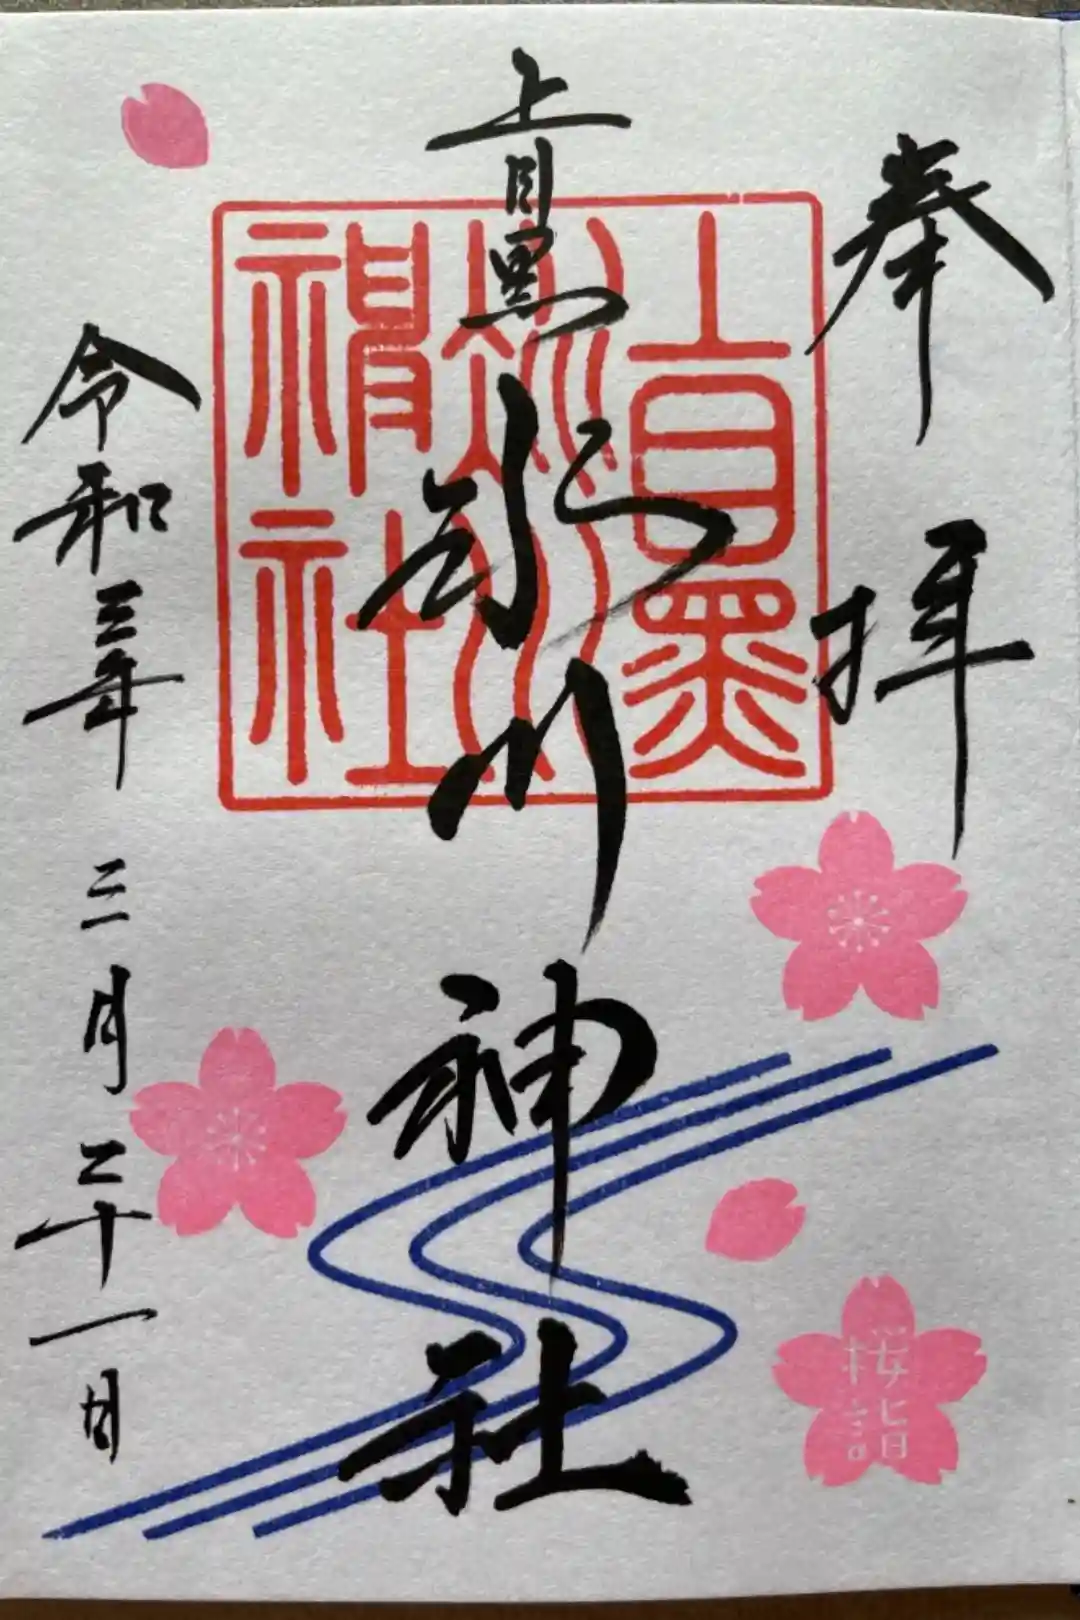 奉拝
上目黒氷川神社
令和三年三月二十一日
上目黒
氷川
神社
桜詣